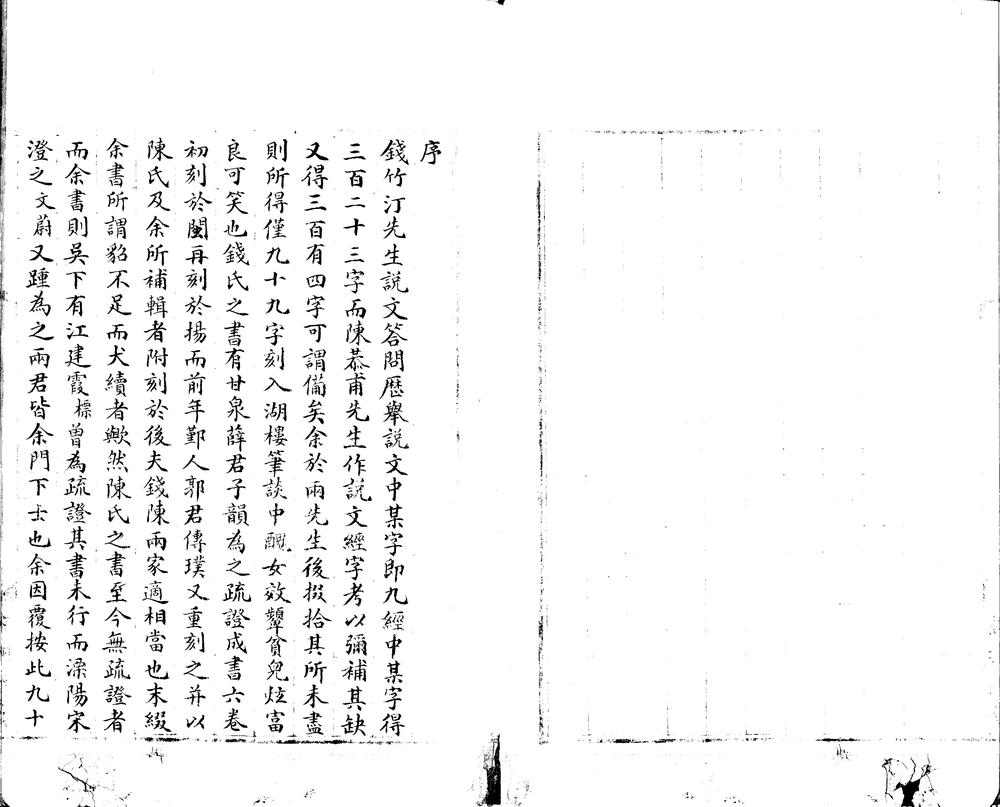 序
錢竹汀先生説文答問歴舉説文中某字即九經中某字得
三百二十三字而陳恭甫先生作説文經字考以彌補其缺
又得三百有四字可謂備矣余於兩先生後掇拾其所未盡
則所得僅九十九字刻入湖樓筆談中醜女效顰貧兒炫富
良可笑也錢氏之書有甘泉薛君子韻為之疏證成書六卷
初刻於閩再刻於揚而前年鄞人郭君傳璞又重刻之并以
陳氏及余所補輯者附刻於後夫錢陳兩家適相當也末綴
余書所謂貂不足而犬續者歟然陳氏之書至今無疏證者
而余書則吳下有江建霞標曽為疏證其書未行而溧陽宋
澄之文蔚又踵為之兩君皆余門下士也余因覆按此九十